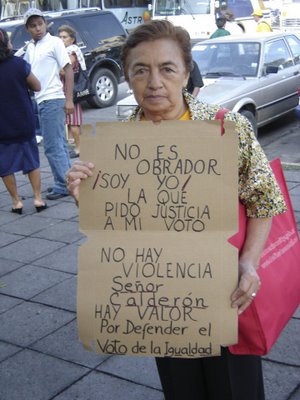 NO ES
OBRADOR
¡SOY YO!
LA QUE
PIDO JUSTICIA
A MI VOTO
NO HAY
VIOLENCIA
Señor
Calderón
HAY VALOR
Por Defender el
Voto de la Igualdad